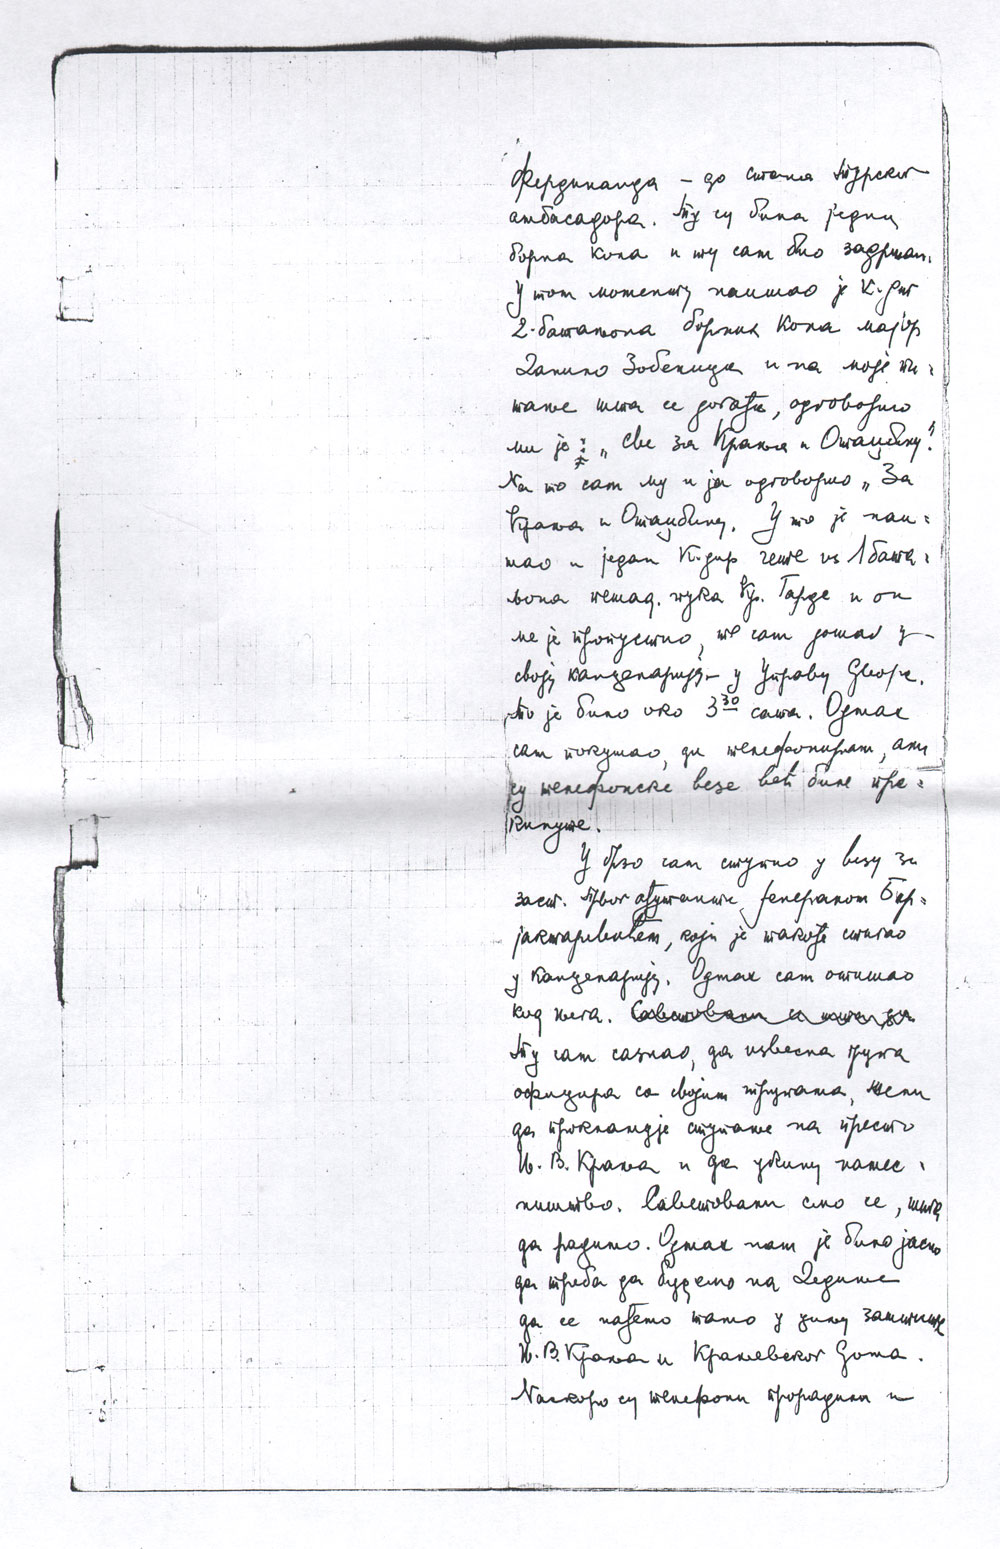 Фердинанда – до стана турског
амбасадора. Ту су била једна
борна кола и ту сам био задржан.
У том моменту наишао је К-дт
2. батаљона борних кола мајор
Данило Зобеница и на моје пи-
тање шта се догађа, одговорио
ми је: „Све за Краља и Отаџбину!"
На то сам му и ја одговорио „За
Краља и Отаџбину. У то је наи-
шао и један К-дир чете из 1 бата-
љона пешад. пука Кр. Гарде и он
ме је пропустио, те сам дошао у
своју канцеларију – у Управу Двора.
То је било око 3³⁰ сата. Одмах
сам покушао, да телефонирам, али
су телефонске везе већ биле пре-
кинуте.
У брзо сам ступио у везу за
заст. Првог ађутанта, генералом Бар-
јактаревићем, који је такође стигао
у канцеларију. Одмах сам отишао
код њега.
Ту сам сазнао, да извесна група
официра са својим трупама, жели
да прокламује ступање на престо
Њ. В. Краља и да укину намес-
ништво. Саветовали смо се, шта
да радимо. Одмах нам је било јасно
да треба да будемо на Дедиње
да се нађемо тамо у циљу заштите
Њ. В. Краља и Краљевског Дома.
Наскоро су телефони прорадили и